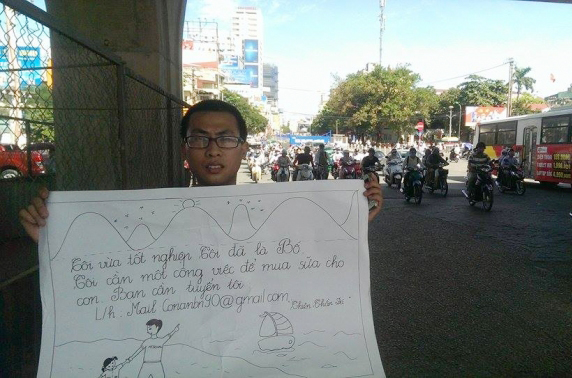 Tôi vừa tốt nghiệp Tôi đã là Bố.
Tôi cần một công việc để mua sữa cho
con. Bạn cần tuyển tôi
L/h. Mail Conanbn90@gmail.com